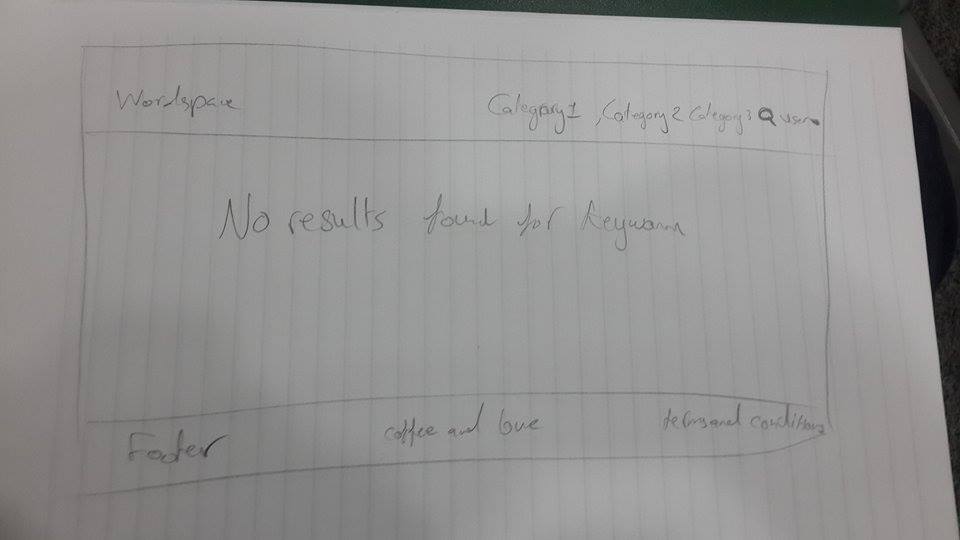 Wordspace
Category1 , Category2 Category3 user
No results found for
Footer coffee and love terms and conditions